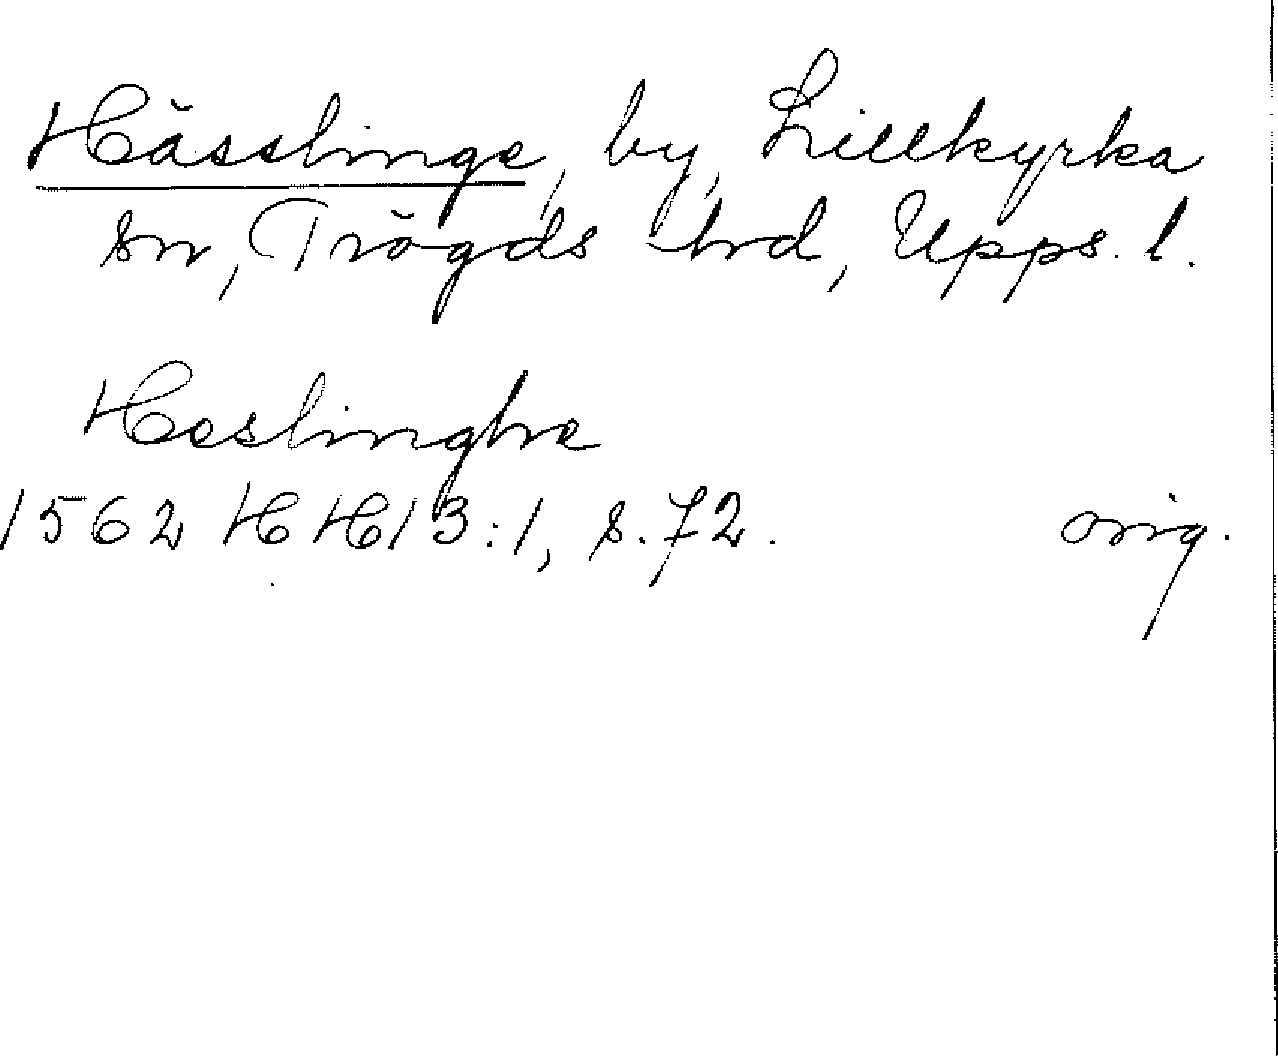 Hässlinge, by, Lillkyrka
sn, Trögds hd, Upps. l.
Heslinghe
1562 HH 13:1, s. 72. orig.